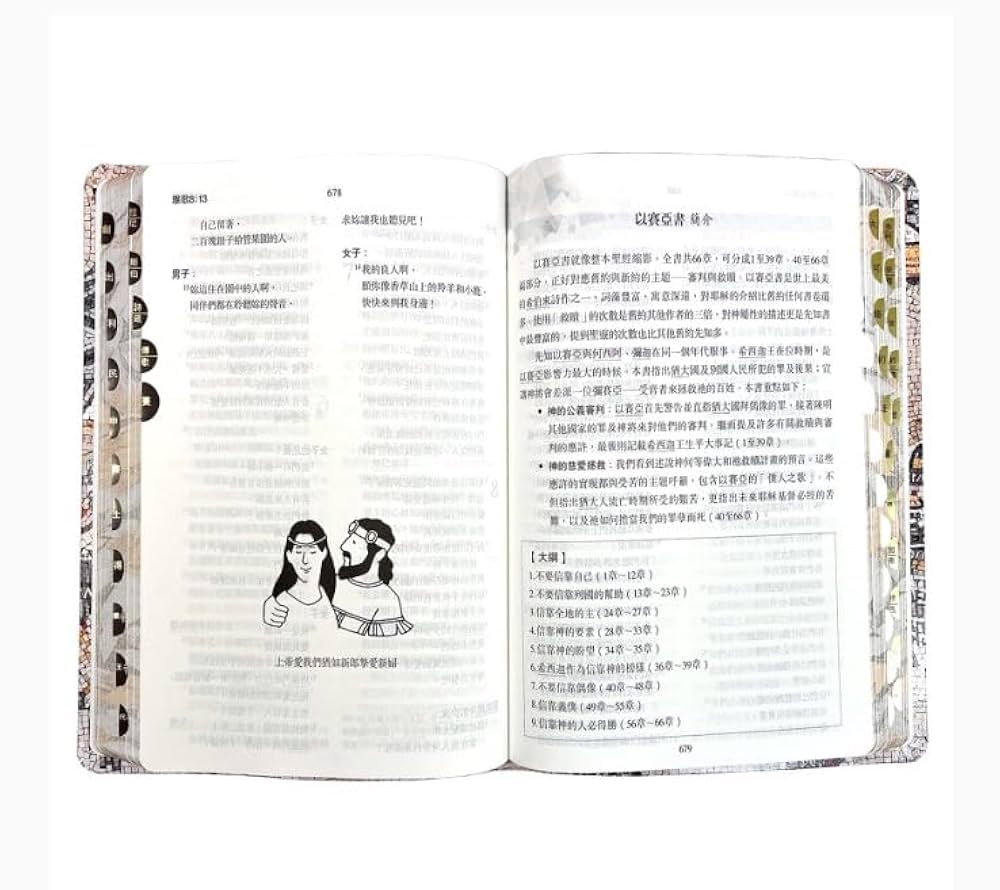 雅歌8:13
678
自己留著，
二百塊銀子給管果園的人。
男子：
13妳這住在園中的人啊，
同伴們都在聆聽妳的聲音，
求妳讓我也聽見吧！
女子：
14我的良人啊，
願你像香草山上的羚羊和小鹿，
快快來與我身邊！
上帝愛我們猶如新郎摯愛新婦
以賽亞書 簡介
以賽亞書就像整本聖經縮影，全書共66章，可分成1至39章、40至66章
兩部分，正好對應舊約與新約的主題——審判與救贖。以賽亞書是世上最美
的希伯來詩作之一，詞藻豐富，寓意深遠，對耶穌的介紹比舊約任何書卷還
多。使用「救贖」的次數是舊約其他作者的三倍，對神屬性的描述更是先知書
中最豐富的，提到聖靈的次數也比其他舊約先知多。
先知以賽亞與何西阿、彌迦在同一個年代服事，希西迦王在位時期，是
以賽亞影響力最大的時候。本書指出猶大國及別國人民所犯的罪及後果；宣
讓神將會差派一位彌賽亞——受膏者來拯救祂的百姓。本書重點如下：
• 神的公義審判：以賽亞首先警告並直指猶大國拜偶像的罪，接著陳明
其他國家的罪及神將來對他們的審判，繼而提及許多有關救贖與審
判的應許，最後則記載希西迦王生平大事記（1至39章）。
• 神的慈愛拯救：我們看到述說神何等偉大和祂救贖計畫的預言。這些
應許的實現都與受苦的主題呼籲，包含以賽亞的「僕人之歌」，不
但指出猶大人流亡時期所受的艱苦，更指出未來耶穌基督必經的苦
難，以及祂如何擔當我們的罪孽而死（40至66章）。
【大綱】
1.不要信靠自己（1章～12章）
2.不要信靠列國的幫助（13章～23章）
3.信靠全地的主（24章～27章）
4.信靠神的要素（28章～33章）
5.信靠神的盼望（34章～35章）
6.希西迦作為信靠神的榜樣（36章～39章）
7.不要信靠偶像（40章～48章）
8.信靠義僕（49章～55章）
9.信靠神的人必得勝（56章～66章）
679